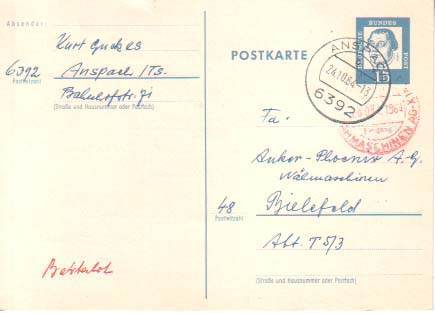 Absender:
Kurt
6392 Anspach /Ts.
Postleitzahl
Bahnhofstr.
(Straße und Hausnummer oder Postfach)
POSTKARTE
DEUTSCHE BUNDESPOST
15
ANSPACH
24.10.64-13
6392
Fa.
Anker-Phoenix A.G.
Nähmaschinen
48 Bielefeld
Postleitzahl
Abt. T 5/3
(Straße und Hausnummer oder Postfach)